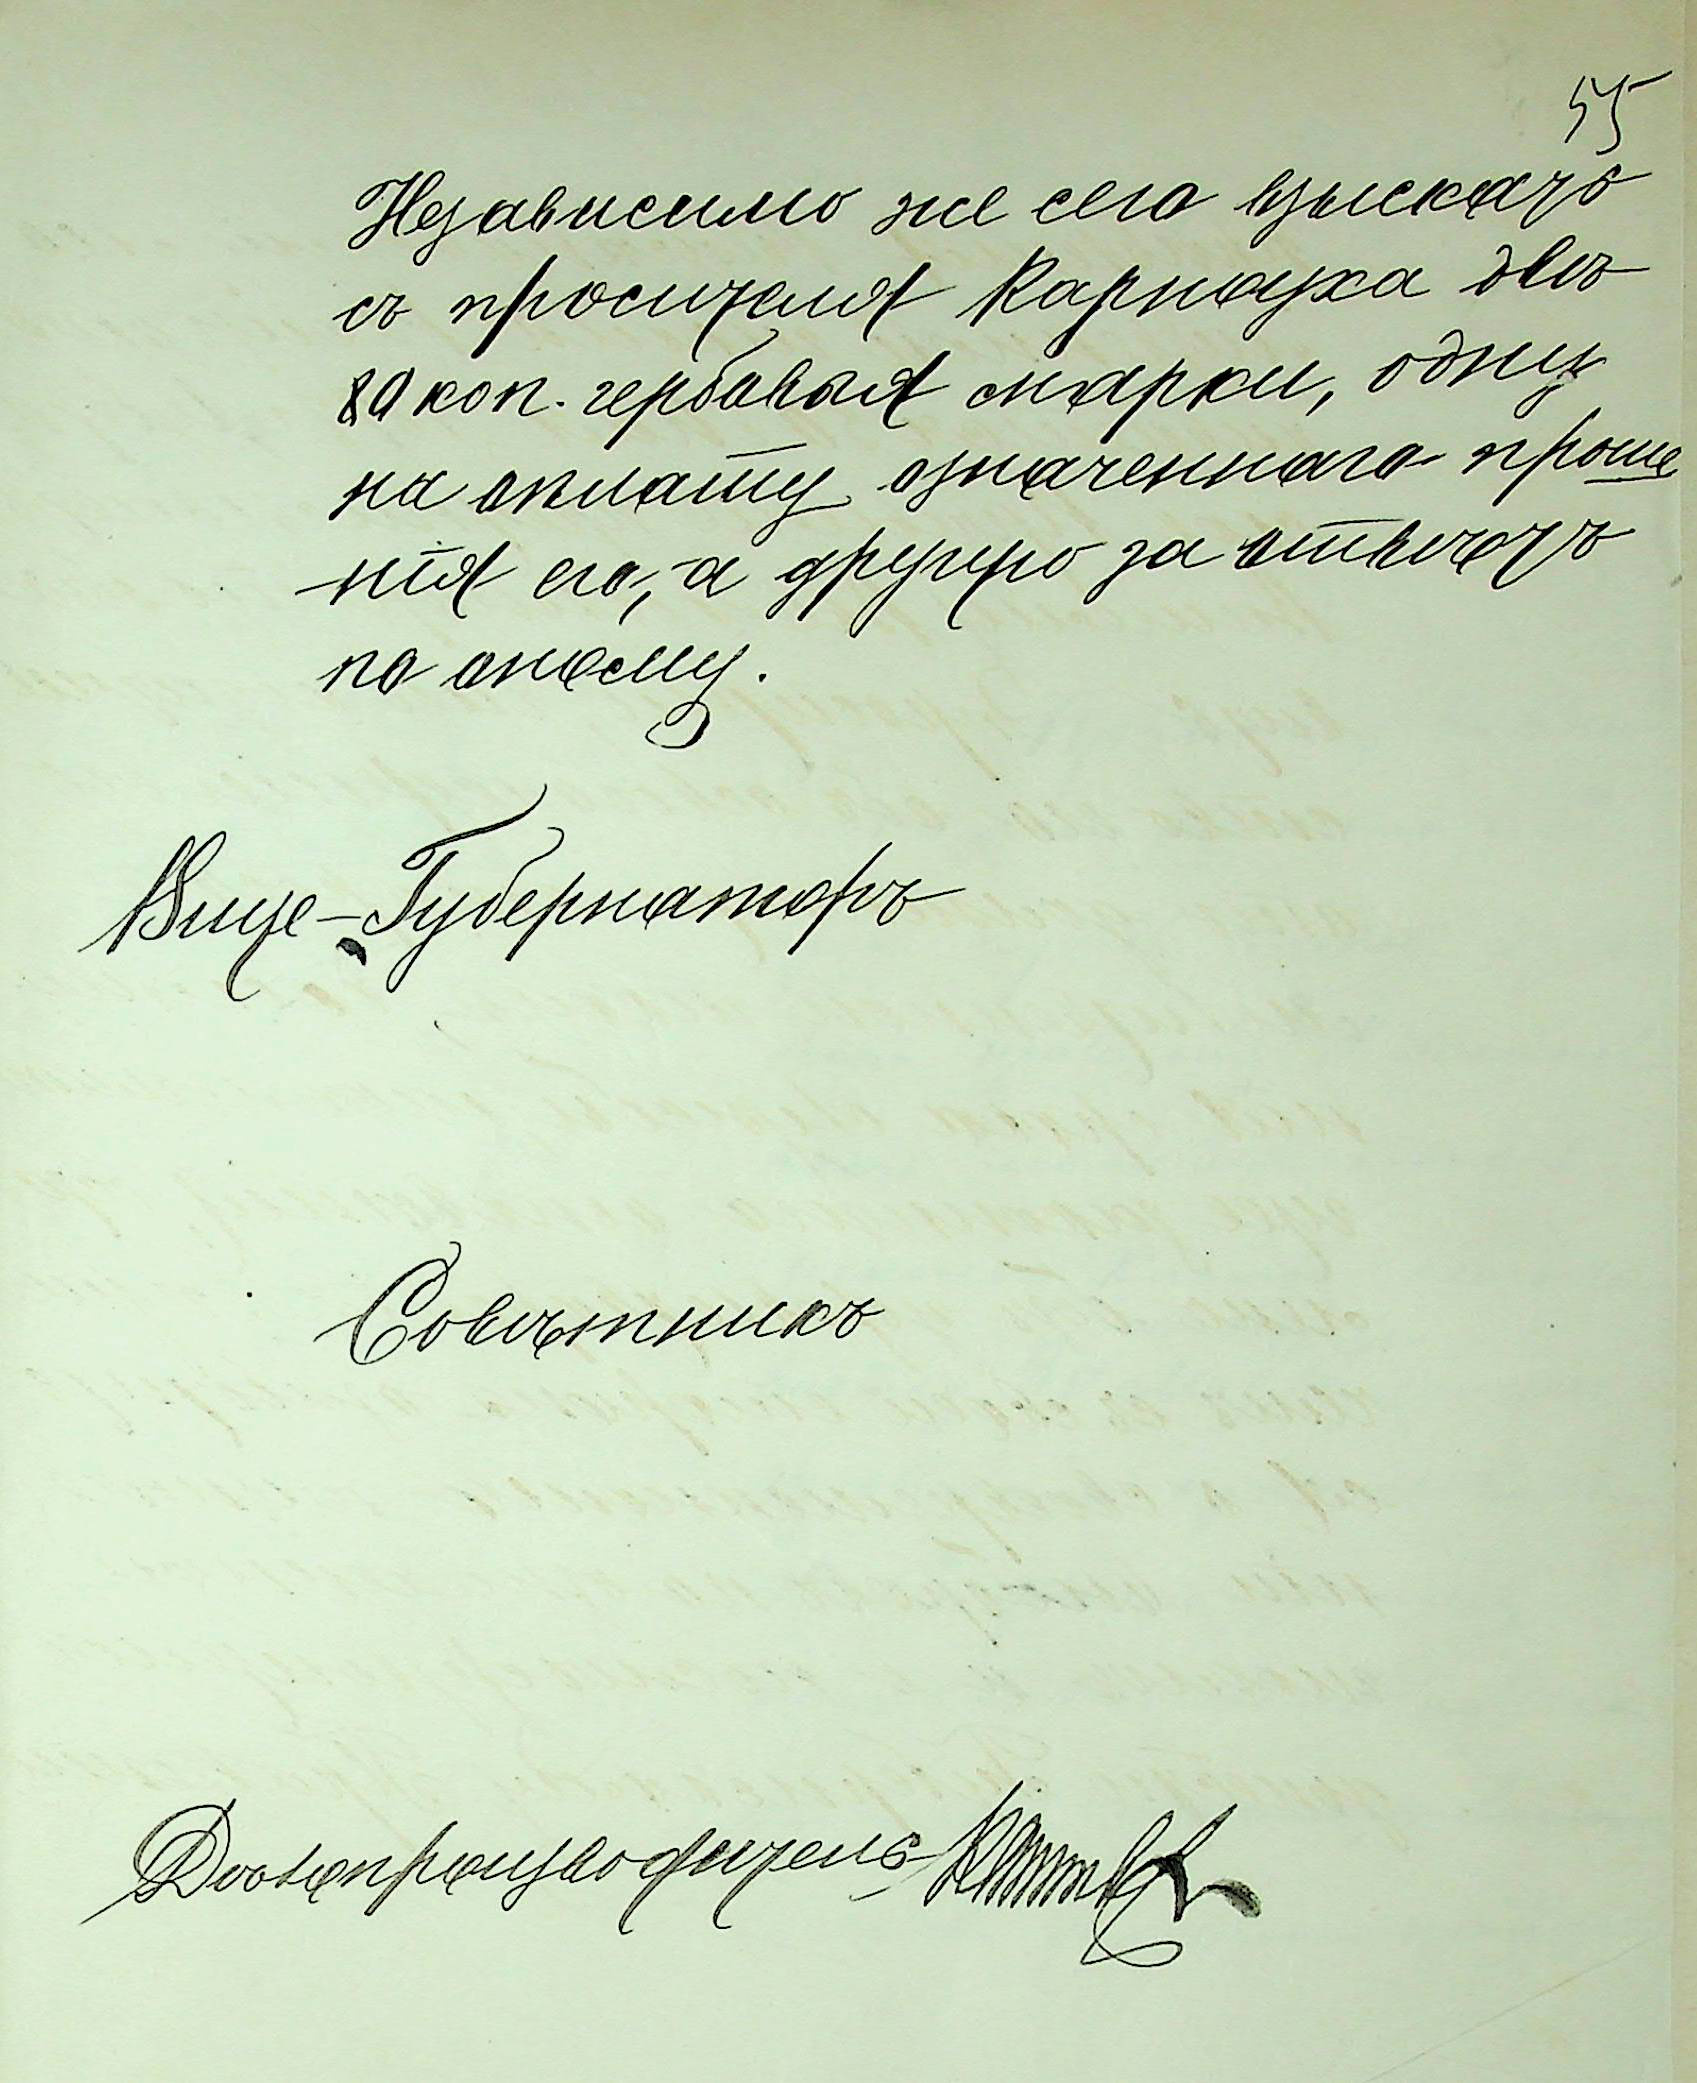 55
Независимо же сего взыскать
съ просителя Карпауха двѣ
80 коп. гербовыя марки, одну
на оплату означеннаго проше
нія его, а другую за отвѣтъ
по оному.
Вице-Губернаторъ
Совѣтникъ
Дѣлопроизводитель